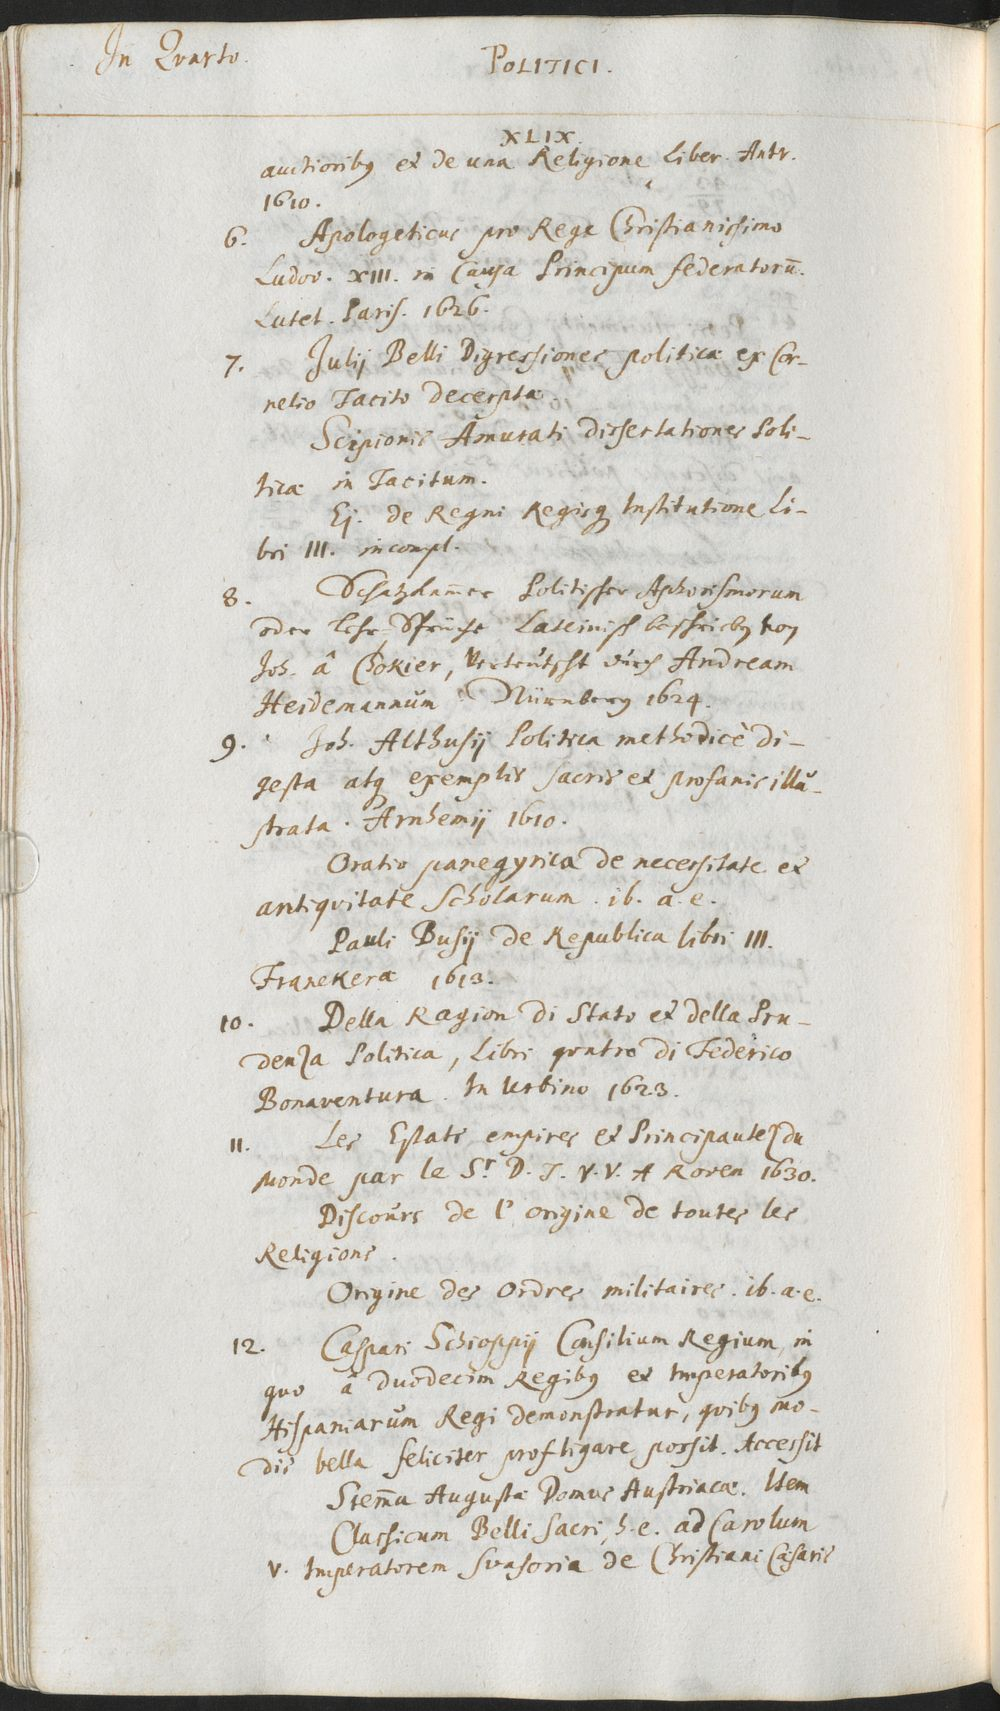 In Qvarto.
POLITICI.
XLIX.
auctioribꝰ et de una Religione Liber. Antv.
1610.
6. Apologeticus pro Rege Christianissimo
Ludov. XIII. in Causa Principum federatorū.
Lutet. Paris. 1626.
7. Julij Belli Digressiones politicæ ex Cor-
nelio Tacito decerptæ.
Scipionis Amurati dissertationes Poli-
ticæ in Tacitum.
Ej. de Regni Regisq Institutione Li-
bri III. incompl.
8. Schatzkam̄er Politischer Aphorismorum
oder Lehr-Sprüche Lateinisch beschrieben von
Joh. â Chokier, Verteutscht durch Andream
Heidemannum Nürnberg 1624.
9. Joh. Althusij Politica methodicè di-
gesta atq exemplis sacris et profanis illu-
strata. Arnhemij 1610.
Oratio panegyrica de necessitate et
antiqvitate Scholarum. ib. a. e.
Pauli Busij de Republica libri III.
Franekeræ 1613.
10. Della Ragion di Stato et della Pru-
denza Politica, Libri qvatro di Federico
Bonaventura. In Urbino 1623.
11. Les Estats empires et Principautez du
Monde par le Sr. D. T. V. V. A Roven 1630.
Discours de l'origine de toutes les
Religions.
Origine des Ordres militaires. ib. a. e.
12. Caspari Schioppij Consilium Regium, in
quo â duodecim Regibꝰ et Imperatoribꝰ
Hispaniarum Regi demonstratur, qvibꝰ mo-
dis bella feliciter profligare possit. Accessit
Stem̄a Augustæ Domus Austriacæ. Item
Classicum Belli Sacri, h. e. ad Carolum
V. Imperatorem Svasoria de Christiani Cæsaris